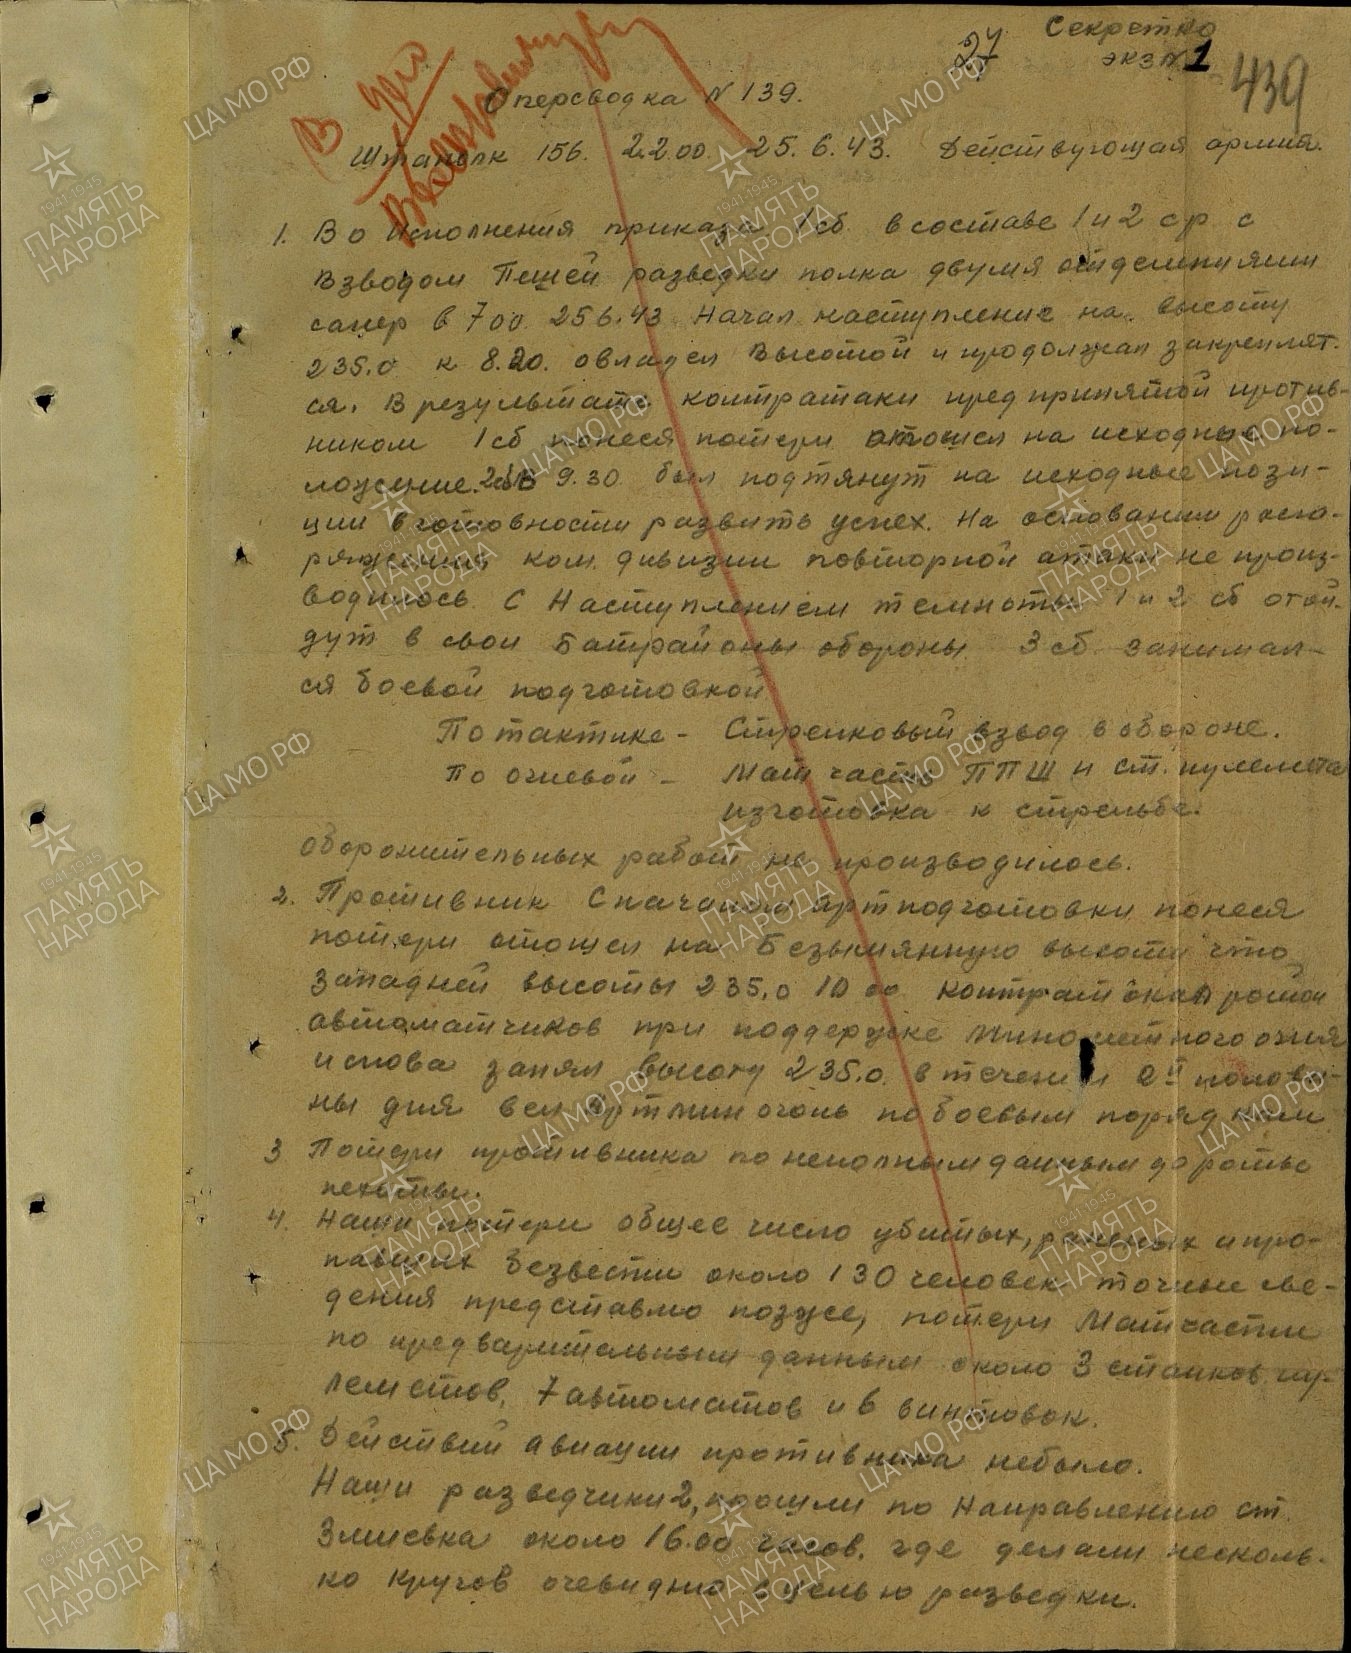 Секретно
27
экз N 1
439
В дело
Оперсводка N 139.
Штаполк 156. 22.00. 25.6.43. Действующая армия.
1. Во исполнения приказа 1 сб в составе 1 и 2 ср с
взводом Пешей разведки полка двумя отделениями
сапер в 7.00 25.6.43 Начал наступление на высоту
235.0 к 8.20. овладел Высотой и продолжал закреплят-
ся. В результате контратаки предпринятой против-
ником 1 сб понеся потери отошел на исходные по-
ложение. 2 сб в 9.30 был подтянут на исходные пози-
ции в готовности развить успех. На основании распо-
ряжения ком. дивизии повторной атаки не произ-
водилось. С Наступлением темноты 1 и 2 сб отой-
дут в свои Батрайоны обороны 3 сб. занимал-
ся боевой подготовкой
По тактике - Стрелковый взвод в обороне.
по огневой - Мат часть ППШ и ст. пулемета
изготовка к стрельбе.
оборонительных работ не производилось.
2. Противник С началом артподготовки понеся
потери отошел на Безымянную высоту что
западней высоты 235.0 10 00 контратаковал ротой
автоматчиков при поддержке минометного огня
и снова занял высоту 235.0. в течении 2й полови-
ны дня вел артминогонь по боевым порядкам
3 Потери противника по неполным данным до роты
пехоты.
4. Наши потери общее число убитых, раненых и про-
павших безвести около 130 человек точные све-
дения представлю позже, потери Матчасти
по предварительным данным около 3 станков. пу-
леметов, 7 автоматов и 6 винтовок.
5. Действий авиации противника небыло.
Наши разведчики 2, прошли по Направлению ст.
Змиевка около 16.00 часов. где делали несколь-
ко кругов очевидно с целью разведки.